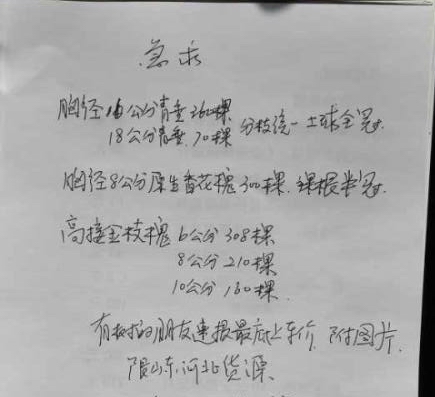 急求
胸径16公分青垂260棵
18公分青垂.70棵 分枝统一土球全冠.
胸径8公分原生香花槐300棵.裸根半冠.
高接金枝槐6公分308棵
8公分210棵
10公分160棵.
有树的朋友速报最底上车价 附图片.
限山东河北货源.